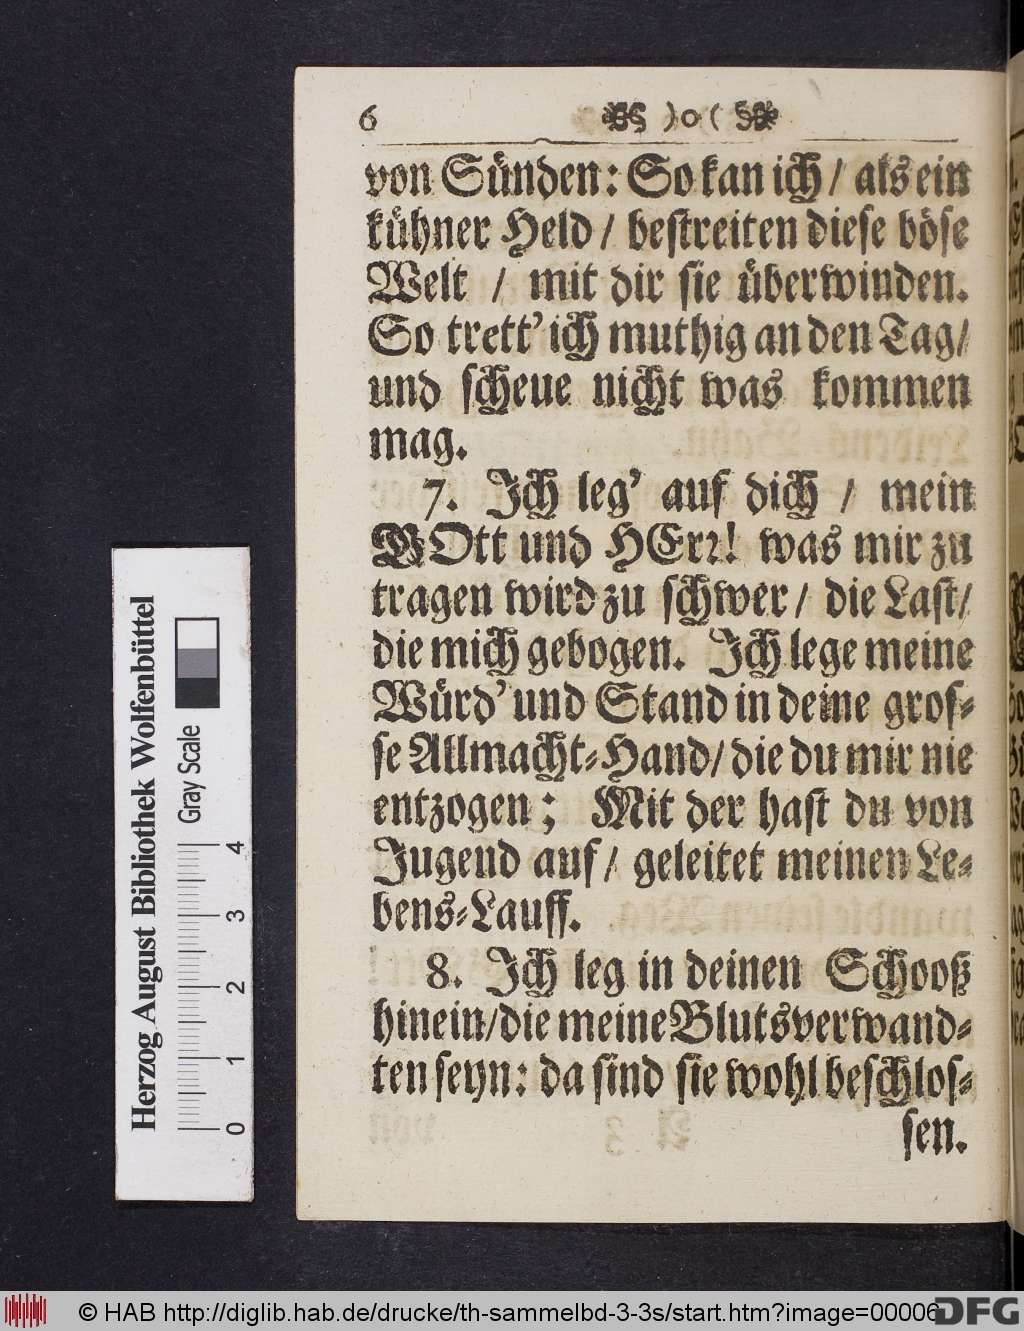 6 )o(
von Sünden: So kan ich / als ein
kühner Held / bestreiten diese böse
Welt / mit dir sie überwinden.
So trett' ich muthig an den Tag/
und scheue nicht was kommen
mag.
7. Ich leg' auf dich / mein
GOtt und HErr! was mir zu
tragen wird zu schwer / die Last/
die mich gebogen. Ich lege meine
Würd' und Stand in deine gros-
se Allmacht-Hand/ die du mir nie
entzogen; Mit der hast du von
Jugend auf/ geleitet meinen Le-
bens-Lauff.
8. Ich leg in deinen Schooß
hinein/die meine Blutsverwand-
ten seyn: da sind sie wohl beschlos-
sen.
Herzog August Bibliothek Wolfenbüttel
Gray Scale
0 1 2 3 4
© HAB http://diglib.hab.de/drucke/th-sammelbd-3-3s/start.htm?image=00006
DFG